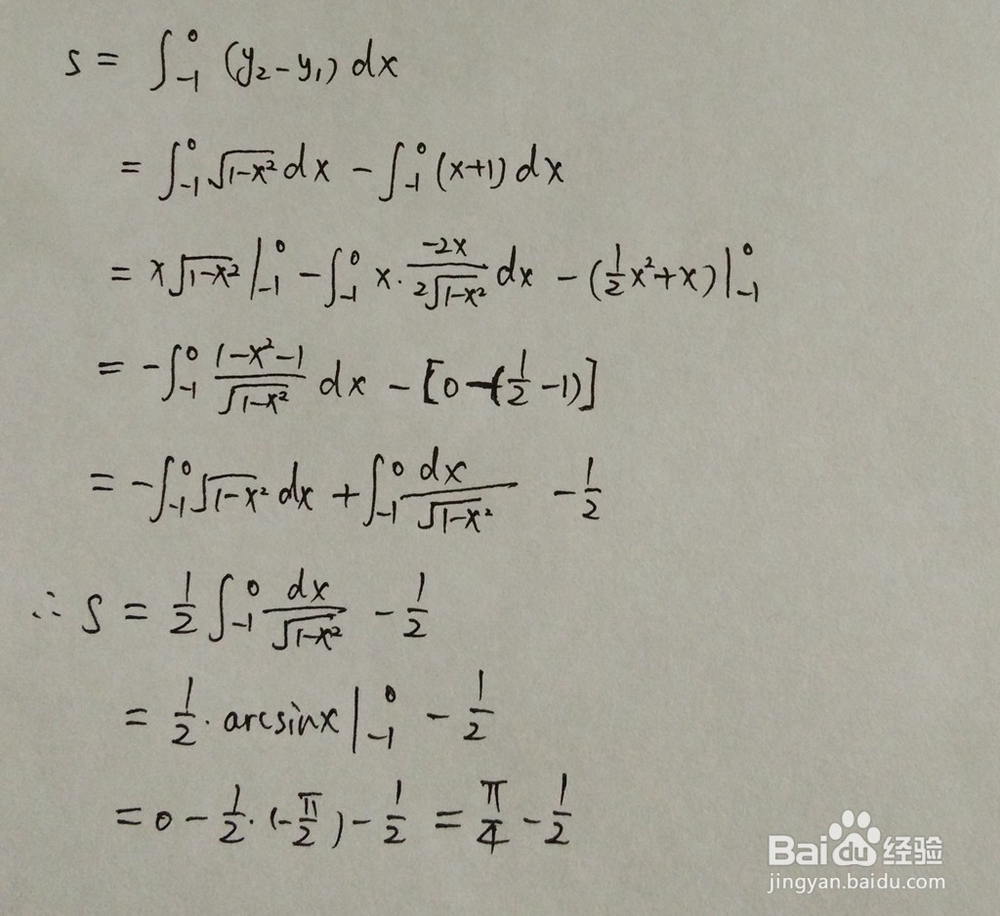 S = ∫₋₁⁰ (y₂-y₁) dx
= ∫₋₁⁰ √(1-x²) dx - ∫₋₁⁰ (x+1) dx
= x√(1-x²) |₋₁⁰ - ∫₋₁⁰ x· (-2x)/(2√(1-x²)) dx - (½x²+x) |₋₁⁰
= -∫₋₁⁰ (1-x²-1)/√(1-x²) dx - [0-(½-1)]
= -∫₋₁⁰ √(1-x²) dx + ∫₋₁⁰ dx/√(1-x²) - ½
∴ S = ½ ∫₋₁⁰ dx/√(1-x²) - ½
= ½ · arcsinx |₋₁⁰ - ½
= 0 - ½ · (-π/2) - ½ = π/4 - ½
Baidu 经验
jingyan.baidu.com